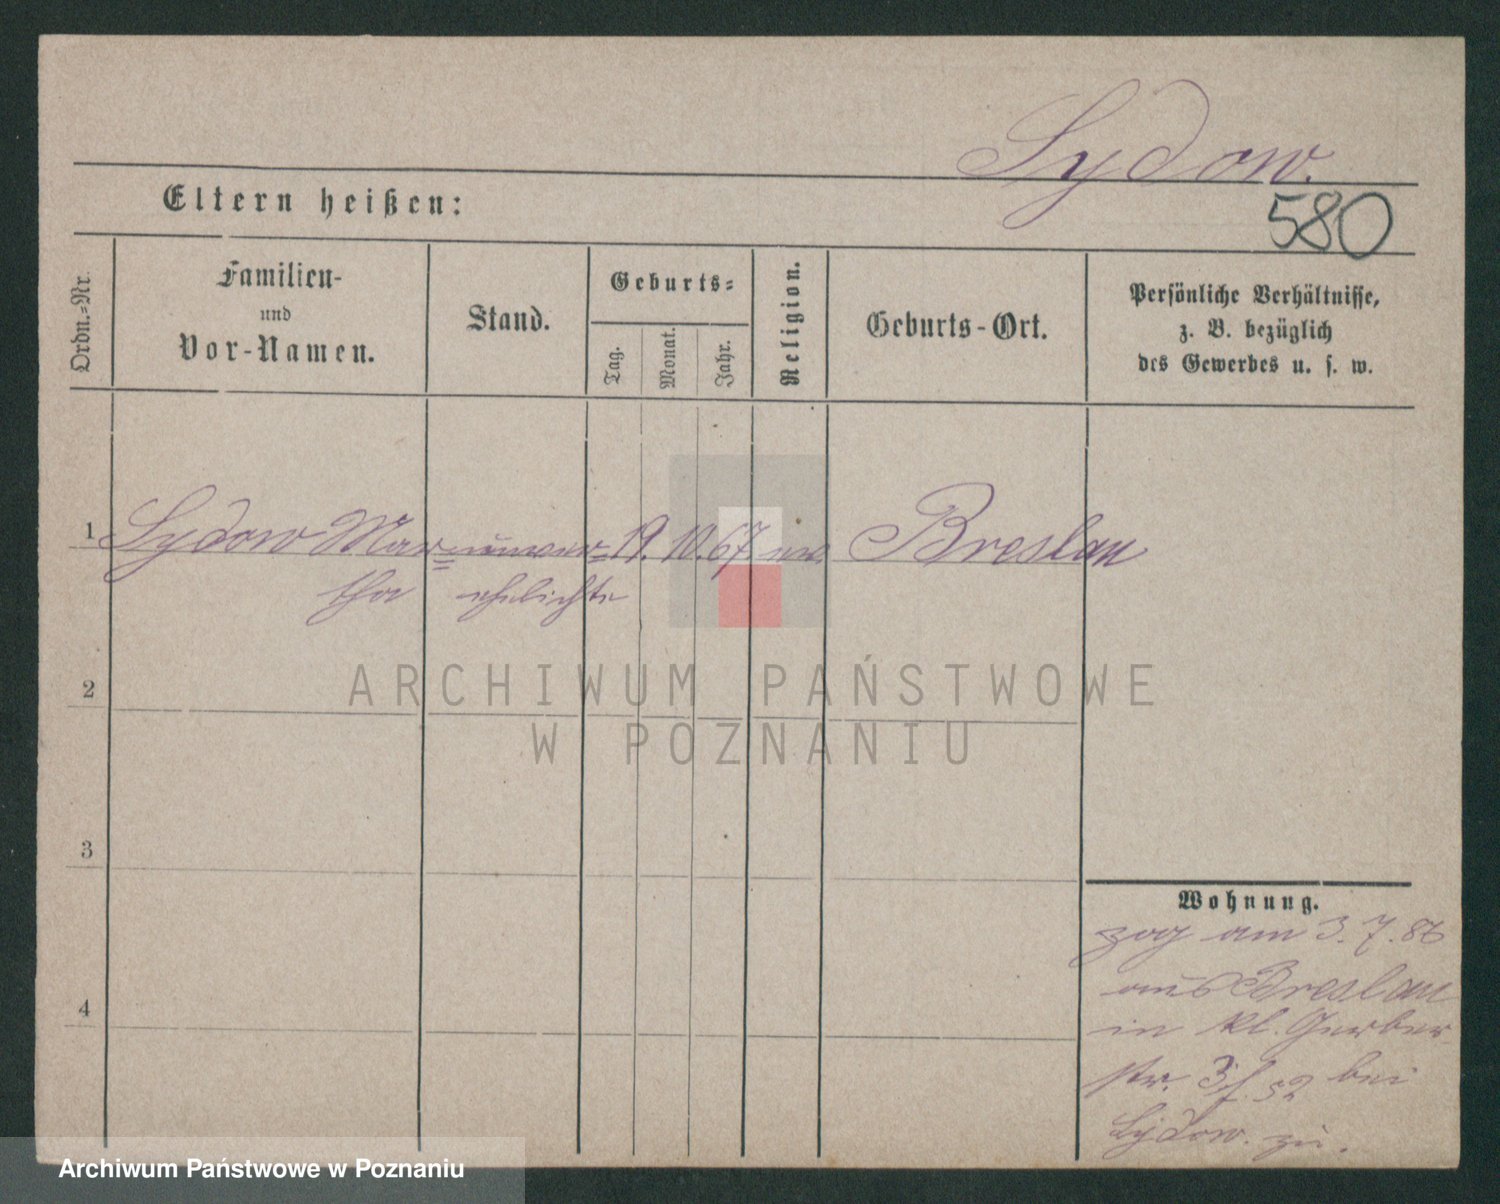 Sydow.
580
Eltern heißen:
Ordn.-Nr.
Familien-
und
Vor-Namen.
Stand.
Geburts-
Tag.
Monat.
Jahr.
Religion.
Geburts-Ort.
Persönliche Verhältnisse,
z. B. bezüglich
des Gewerbes u. s. w.
1 Sydow Mar= unver= 19. 10. 67. Breslau
tha ehelichte
2
3
4
Wohnung.
zog am 3. 7. 86
aus Breslau
in kl. Gerber
str. bei
Sydow. zu.
ARCHIWUM PAŃSTWOWE
W POZNANIU
Archiwum Państwowe w Poznaniu